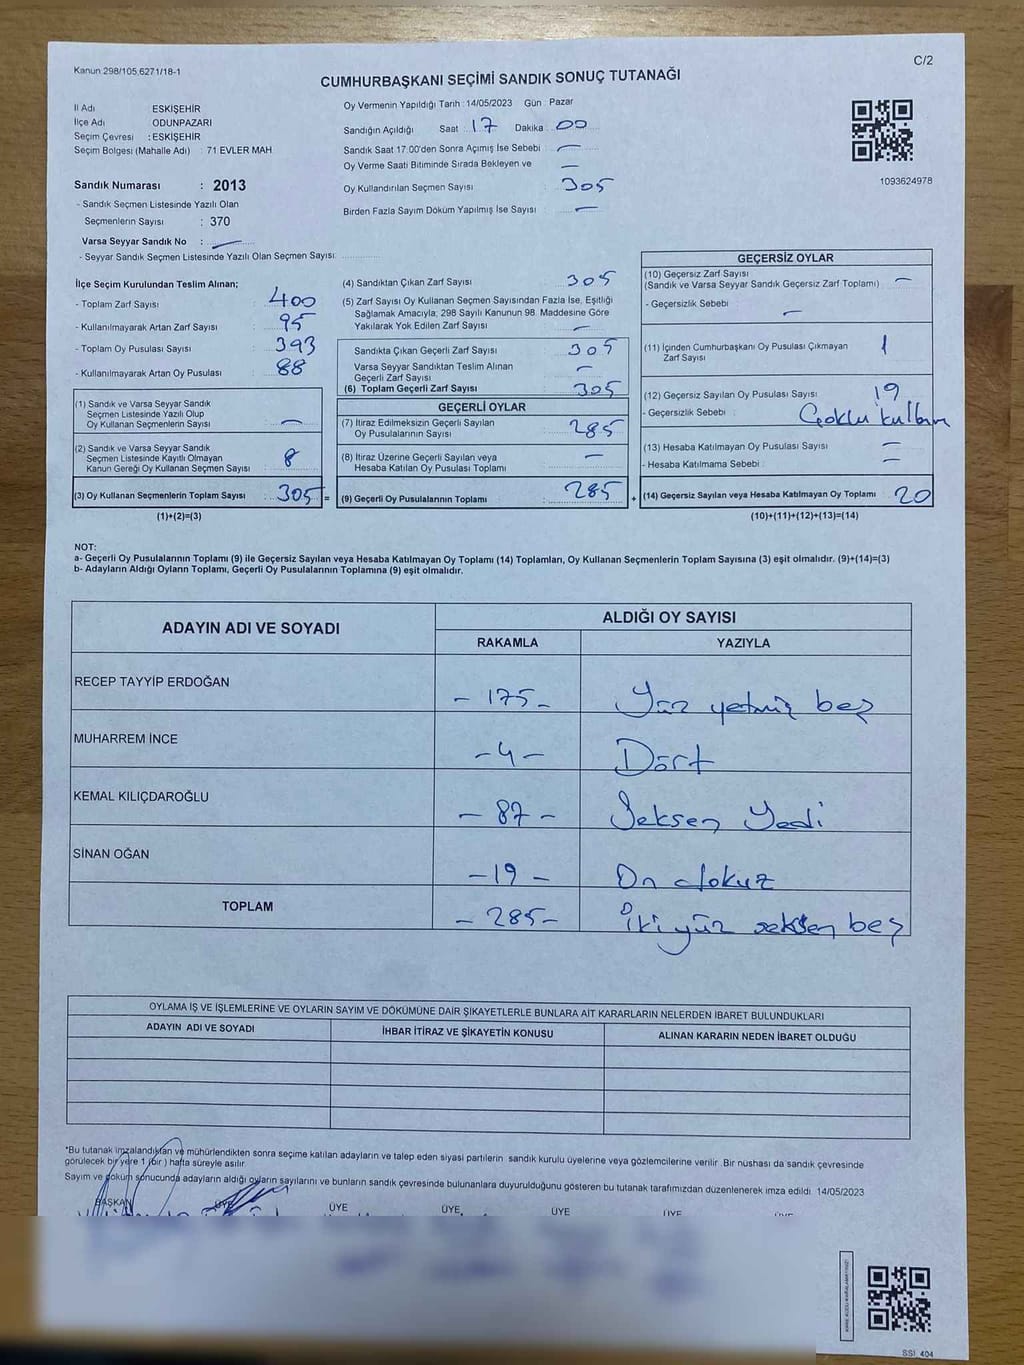 Kanun 298/105,6271/18-1
C/2
CUMHURBAŞKANI SEÇİMİ SANDIK SONUÇ TUTANAĞI
İl Adı ESKİŞEHİR
İlçe Adı ODUNPAZARI
Seçim Çevresi : ESKİŞEHİR
Seçim Bölgesi (Mahalle Adı) : 71 EVLER MAH.
Sandık Numarası : 2013
- Sandık Seçmen Listesinde Yazılı Olan
Seçmenlerin Sayısı : 370
Varsa Seyyar Sandık No : —
- Seyyar Sandık Seçmen Listesinde Yazılı Olan Seçmen Sayısı:
Oy Vermenin Yapıldığı Tarih : 14/05/2023 Gün : Pazar
Sandığın Açıldığı Saat : 17 Dakika : 00
Sandık Saat 17:00'den Sonra Açımış İse Sebebi : —
Oy Verme Saati Bitiminde Sırada Bekleyen ve —
Oy Kullandırılan Seçmen Sayısı : 305
Birden Fazla Sayım Döküm Yapılmış İse Sayısı : —
1093624978
İlçe Seçim Kurulundan Teslim Alınan;
- Toplam Zarf Sayısı : 400
- Kullanılmayarak Artan Zarf Sayısı : 95
- Toplam Oy Pusulası Sayısı : 393
- Kullanılmayarak Artan Oy Pusulası : 88
(1) Sandık ve Varsa Seyyar Sandık
Seçmen Listesinde Yazılı Olup
Oy Kullanan Seçmenlerin Sayısı : —
(2) Sandık ve Varsa Seyyar Sandık
Seçmen Listesinde Kayıtlı Olmayan
Kanun Gereği Oy Kullanan Seçmen Sayısı : 8
(3) Oy Kullanan Seçmenlerin Toplam Sayısı : 305 =
(1)+(2)=(3)
(4) Sandıktan Çıkan Zarf Sayısı : 305
(5) Zarf Sayısı Oy Kullanan Seçmen Sayısından Fazla İse, Eşitliği
Sağlamak Amacıyla, 298 Sayılı Kanunun 98. Maddesine Göre
Yakılarak Yok Edilen Zarf Sayısı : —
Sandıkta Çıkan Geçerli Zarf Sayısı : 305
Varsa Seyyar Sandıktan Teslim Alınan
Geçerli Zarf Sayısı : —
(6) Toplam Geçerli Zarf Sayısı : 305
GEÇERLİ OYLAR
(7) İtiraz Edilmeksizin Geçerli Sayılan
Oy Pusulalarının Sayısı : 285
(8) İtiraz Üzerine Geçerli Sayılan veya
Hesaba Katılan Oy Pusulası Toplamı : —
(9) Geçerli Oy Pusulalarının Toplamı : 285 +
GEÇERSİZ OYLAR
(10) Geçersiz Zarf Sayısı
(Sandık ve Varsa Seyyar Sandık Geçersiz Zarf Toplamı) : —
- Geçersizlik Sebebi : —
(11) İçinden Cumhurbaşkanı Oy Pusulası Çıkmayan
Zarf Sayısı : 1
(12) Geçersiz Sayılan Oy Pusulası Sayısı : 19
- Geçersizlik Sebebi : Çoklu
(13) Hesaba Katılmayan Oy Pusulası Sayısı : —
- Hesaba Katılmama Sebebi : —
(14) Geçersiz Sayılan veya Hesaba Katılmayan Oy Toplamı : 20
(10)+(11)+(12)+(13)=(14)
NOT:
a- Geçerli Oy Pusulalarının Toplamı (9) ile Geçersiz Sayılan veya Hesaba Katılmayan Oy Toplamı (14) Toplamları, Oy Kullanan Seçmenlerin Toplam Sayısına (3) eşit olmalıdır. (9)+(14)=(3)
b- Adayların Aldığı Oyların Toplamı, Geçerli Oy Pusulalarının Toplamına (9) eşit olmalıdır.
ADAYIN ADI VE SOYADI ALDIĞI OY SAYISI
RAKAMLA YAZIYLA
RECEP TAYYİP ERDOĞAN - 175 - Yüz yetmiş beş
MUHARREM İNCE - 4 - Dört
KEMAL KILIÇDAROĞLU - 87 - Seksen Yedi
SİNAN OĞAN - 19 - On dokuz
TOPLAM - 285 - İki yüz seksen beş
OYLAMA İŞ VE İŞLEMLERİNE VE OYLARIN SAYIM VE DÖKÜMÜNE DAİR ŞİKAYETLERLE BUNLARA AİT KARARLARIN NELERDEN İBARET BULUNDUKLARI
ADAYIN ADI VE SOYADI İHBAR İTİRAZ VE ŞİKAYETİN KONUSU ALINAN KARARIN NEDEN İBARET OLDUĞU
*Bu tutanak imzalandıktan ve mühürlendikten sonra seçime katılan adayların ve talep eden siyasi partilerin sandık kurulu üyelerine veya gözlemcilerine verilir. Bir nushası da sandık çevresinde
görülecek bir yere 1 (bir) hafta süreyle asılır.
Sayım ve döküm sonucunda adayların aldığı oyların sayılarını ve bunların sandık çevresinde bulunanlara duyurulduğunu gösteren bu tutanak tarafımızdan düzenlenerek imza edildi. 14/05/2023
BAŞKAN ÜYE ÜYE ÜYE ÜYE ÜYE
SSİ_404